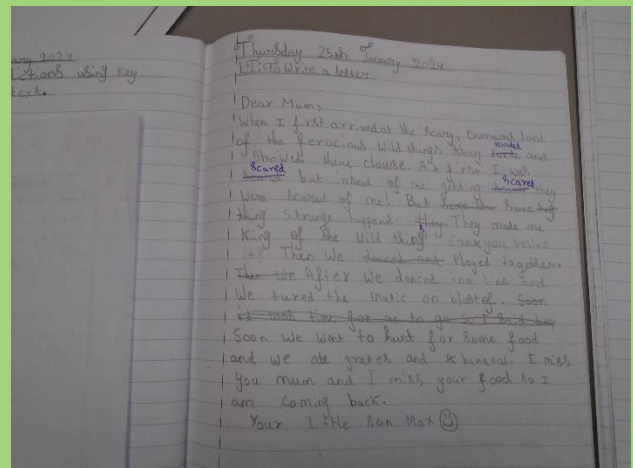 ary 2024
ictions using key
text.
Thursday 25th January 2024
L.I: To Write a letter
Dear Mum,
When I first arrived at the scary, enormous land
of the ferocious wild things they roared and
showed there clawse. At first I was
scared but insted of me getting scared they
were scared of me! But some
thing strange happend. They made me
King of the Wild thing. Cank you beleve
it? Then We danced and Played together.
Then We After We danced in a line and
We tured the music on blast of. Soon
it was time for me to go so I said bey
Soon we went to hunt for some food
and we ate grapes and bananas. I miss
you mum and I miss your food so I
am coming back.
Your little son Max